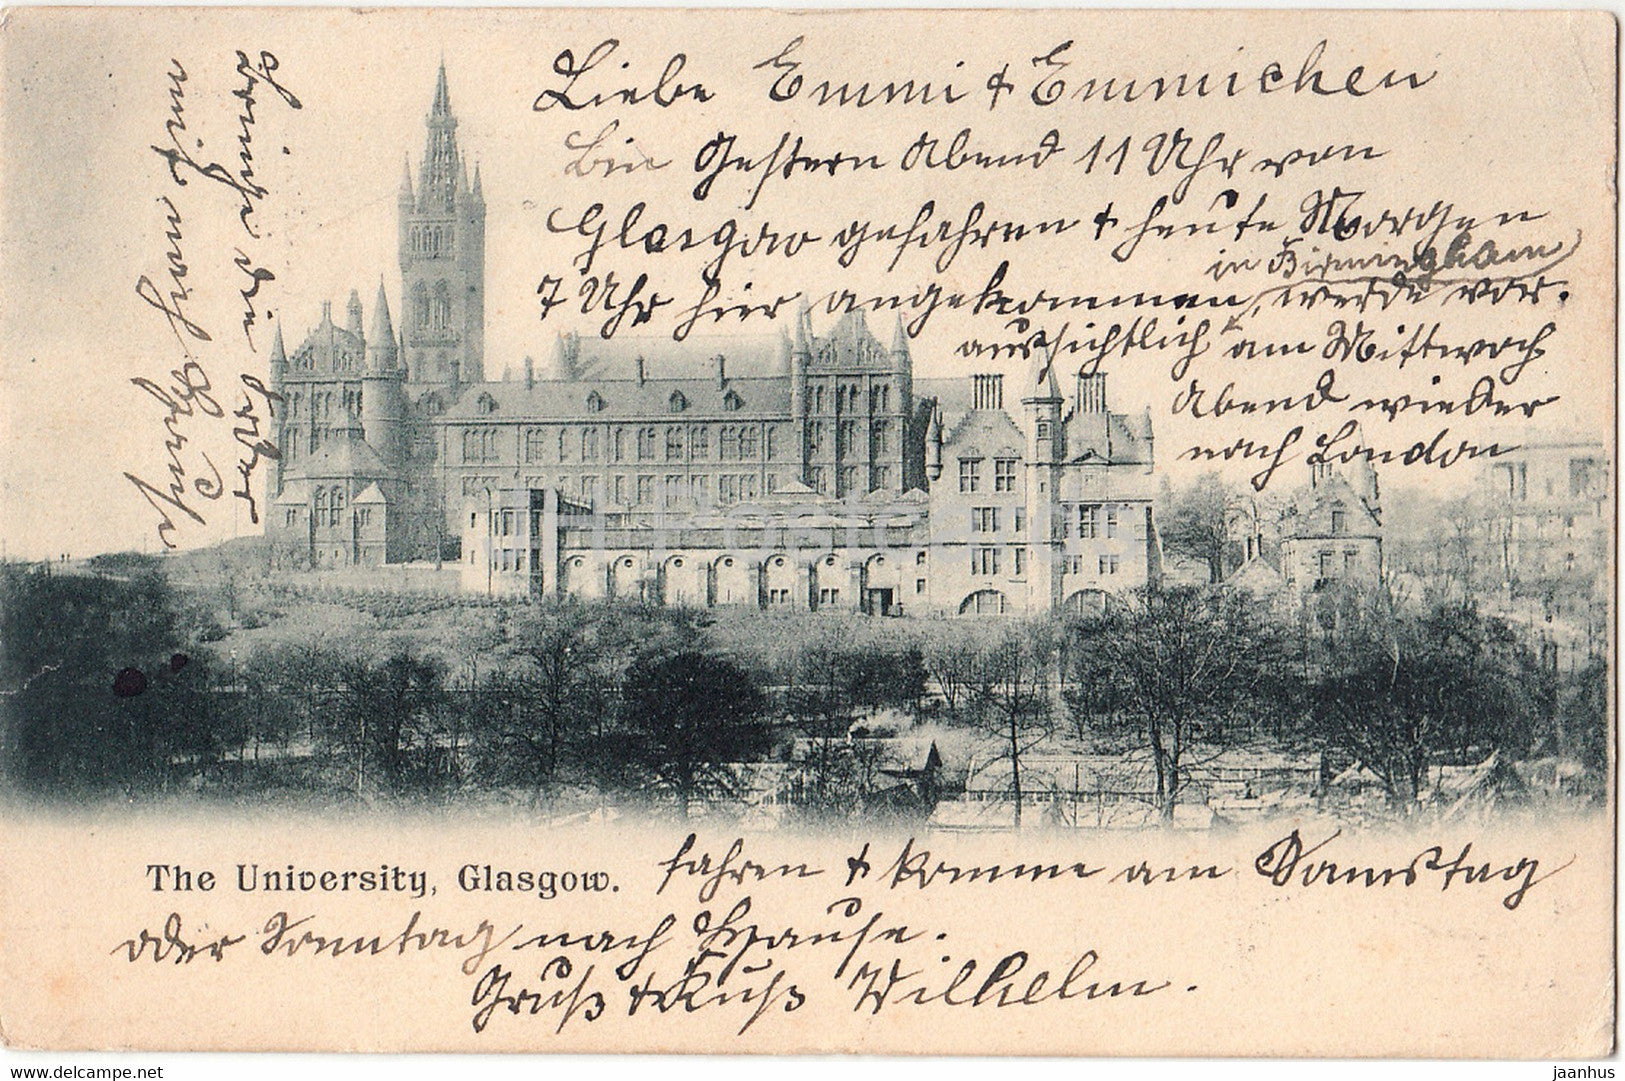 Liebe Emmi & Emmichen
bin Gestern Abend 11 Uhr von
Glasgow gefahren & heute Morgen
in Birmingham
7 Uhr hier angekommen, werde vor-
aussichtlich am Mittwoch
Abend wieder
nach London
The University, Glasgow. fahren & komme am Samstag
oder Sonntag nach Hause.
Gruß & Kuß Wilhelm.
die
mich
HPostcards
delcampe.net
jaanhus